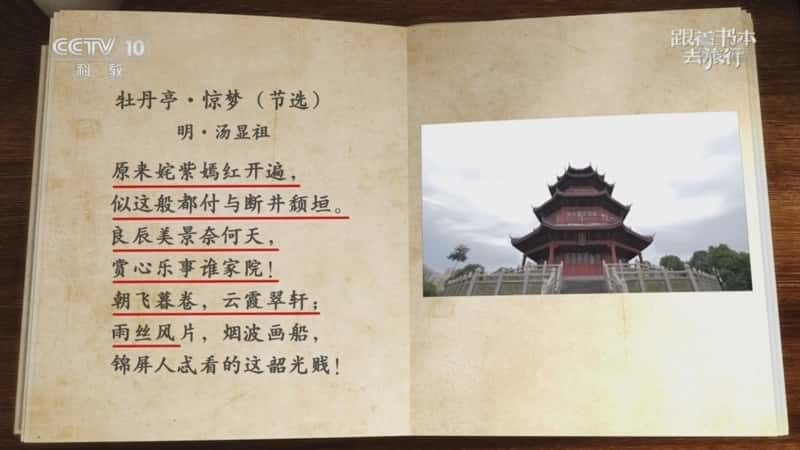 CCTV 10
科教
跟着书本
去旅行
牡丹亭·惊梦（节选）
明·汤显祖
原来姹紫嫣红开遍，
似这般都付与断井颓垣。
良辰美景奈何天，
赏心乐事谁家院！
朝飞暮卷，云霞翠轩；
雨丝风片，烟波画船，
锦屏人忒看的这韶光贱！